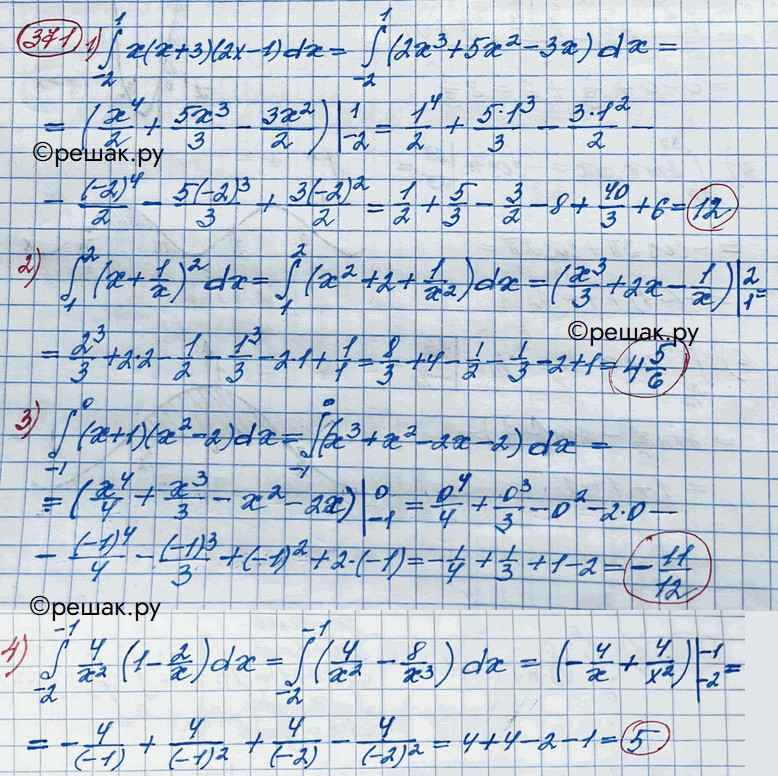 371 1) ∫₋₂¹ x(x+3)(2x-1)dx = ∫₋₂¹ (2x³+5x²-3x)dx =
= (x⁴/2 + 5x³/3 - 3x²/2)|₋₂¹ = 1⁴/2 + 5·1³/3 - 3·1²/2 -
©решак.ру
- (-2)⁴/2 - 5(-2)³/3 + 3(-2)²/2 = 1/2 + 5/3 - 3/2 - 8 + 40/3 + 6 = 12
2) ∫₁² (x+1/x)² dx = ∫₁² (x²+2+1/x²)dx = (x³/3+2x-1/x)|₁² =
©решак.ру
= 2³/3 + 2·2 - 1/2 - 1³/3 - 2·1 + 1/1 = 8/3 + 4 - 1/2 - 1/3 - 2 + 1 = 4 5/6
3) ∫₋₁⁰ (x+1)(x²-2)dx = ∫₋₁⁰ (x³+x²-2x-2)dx =
= (x⁴/4 + x³/3 - x² - 2x)|₋₁⁰ = 0⁴/4 + 0³/3 - 0² - 2·0 -
- (-1)⁴/4 - (-1)³/3 + (-1)² + 2·(-1) = -1/4 + 1/3 + 1 - 2 = -11/12
©решак.ру
4) ∫₋₂⁻¹ 4/x² (1-2/x)dx = ∫₋₂⁻¹ (4/x² - 8/x³) dx = (-4/x + 4/x²)|₋₂⁻¹ =
= -4/(-1) + 4/(-1)² + 4/(-2) - 4/(-2)² = 4+4-2-1 = 5